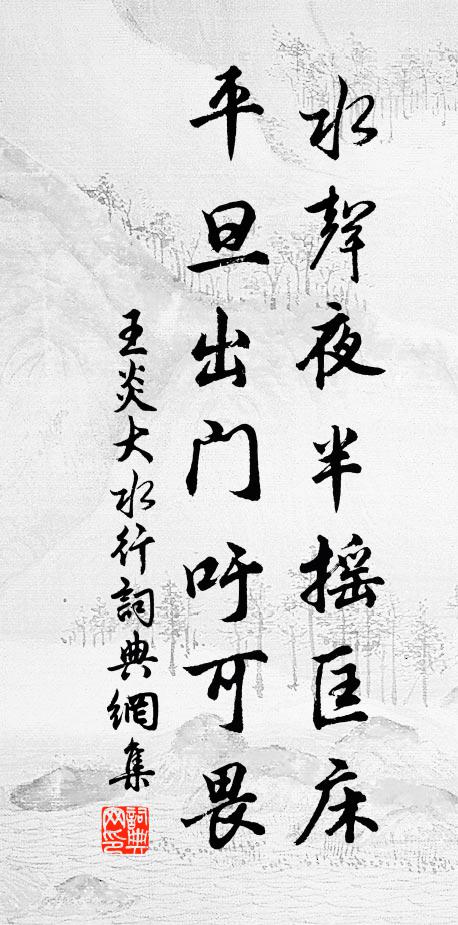 水聲夜半摇匡床
平旦出门吁可畏
王炎大水行詞典網集
詞典网印